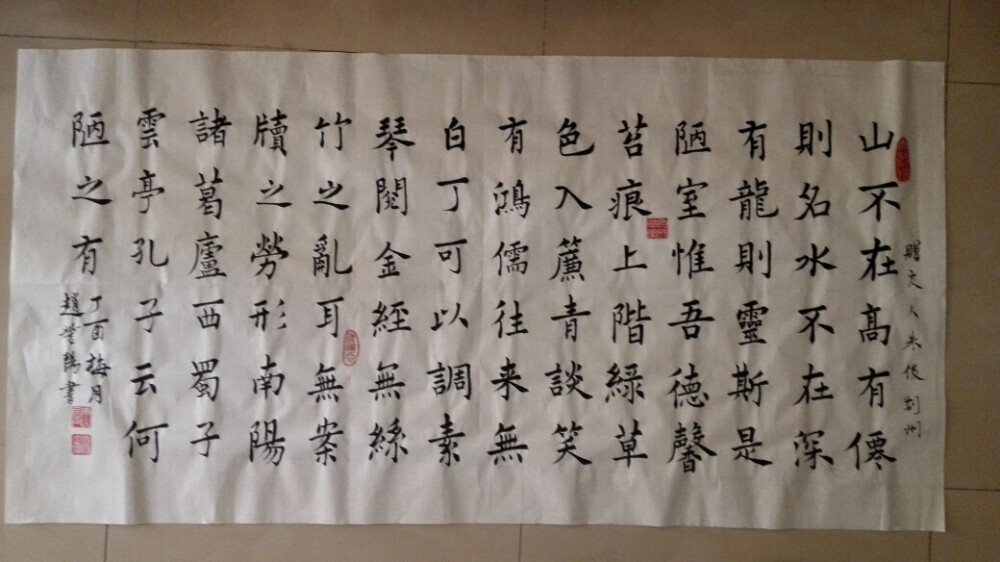 山不在高有僊
則名水不在深
有龍則靈斯是
陋室惟吾德馨
苔痕上階綠草
色入簾青談笑
有鴻儒往来無
白丁可以調素
琴閱金經無絲
竹之亂耳無案
牘之勞形南陽
諸葛廬西蜀子
雲亭孔子云何
陋之有
丁酉梅月